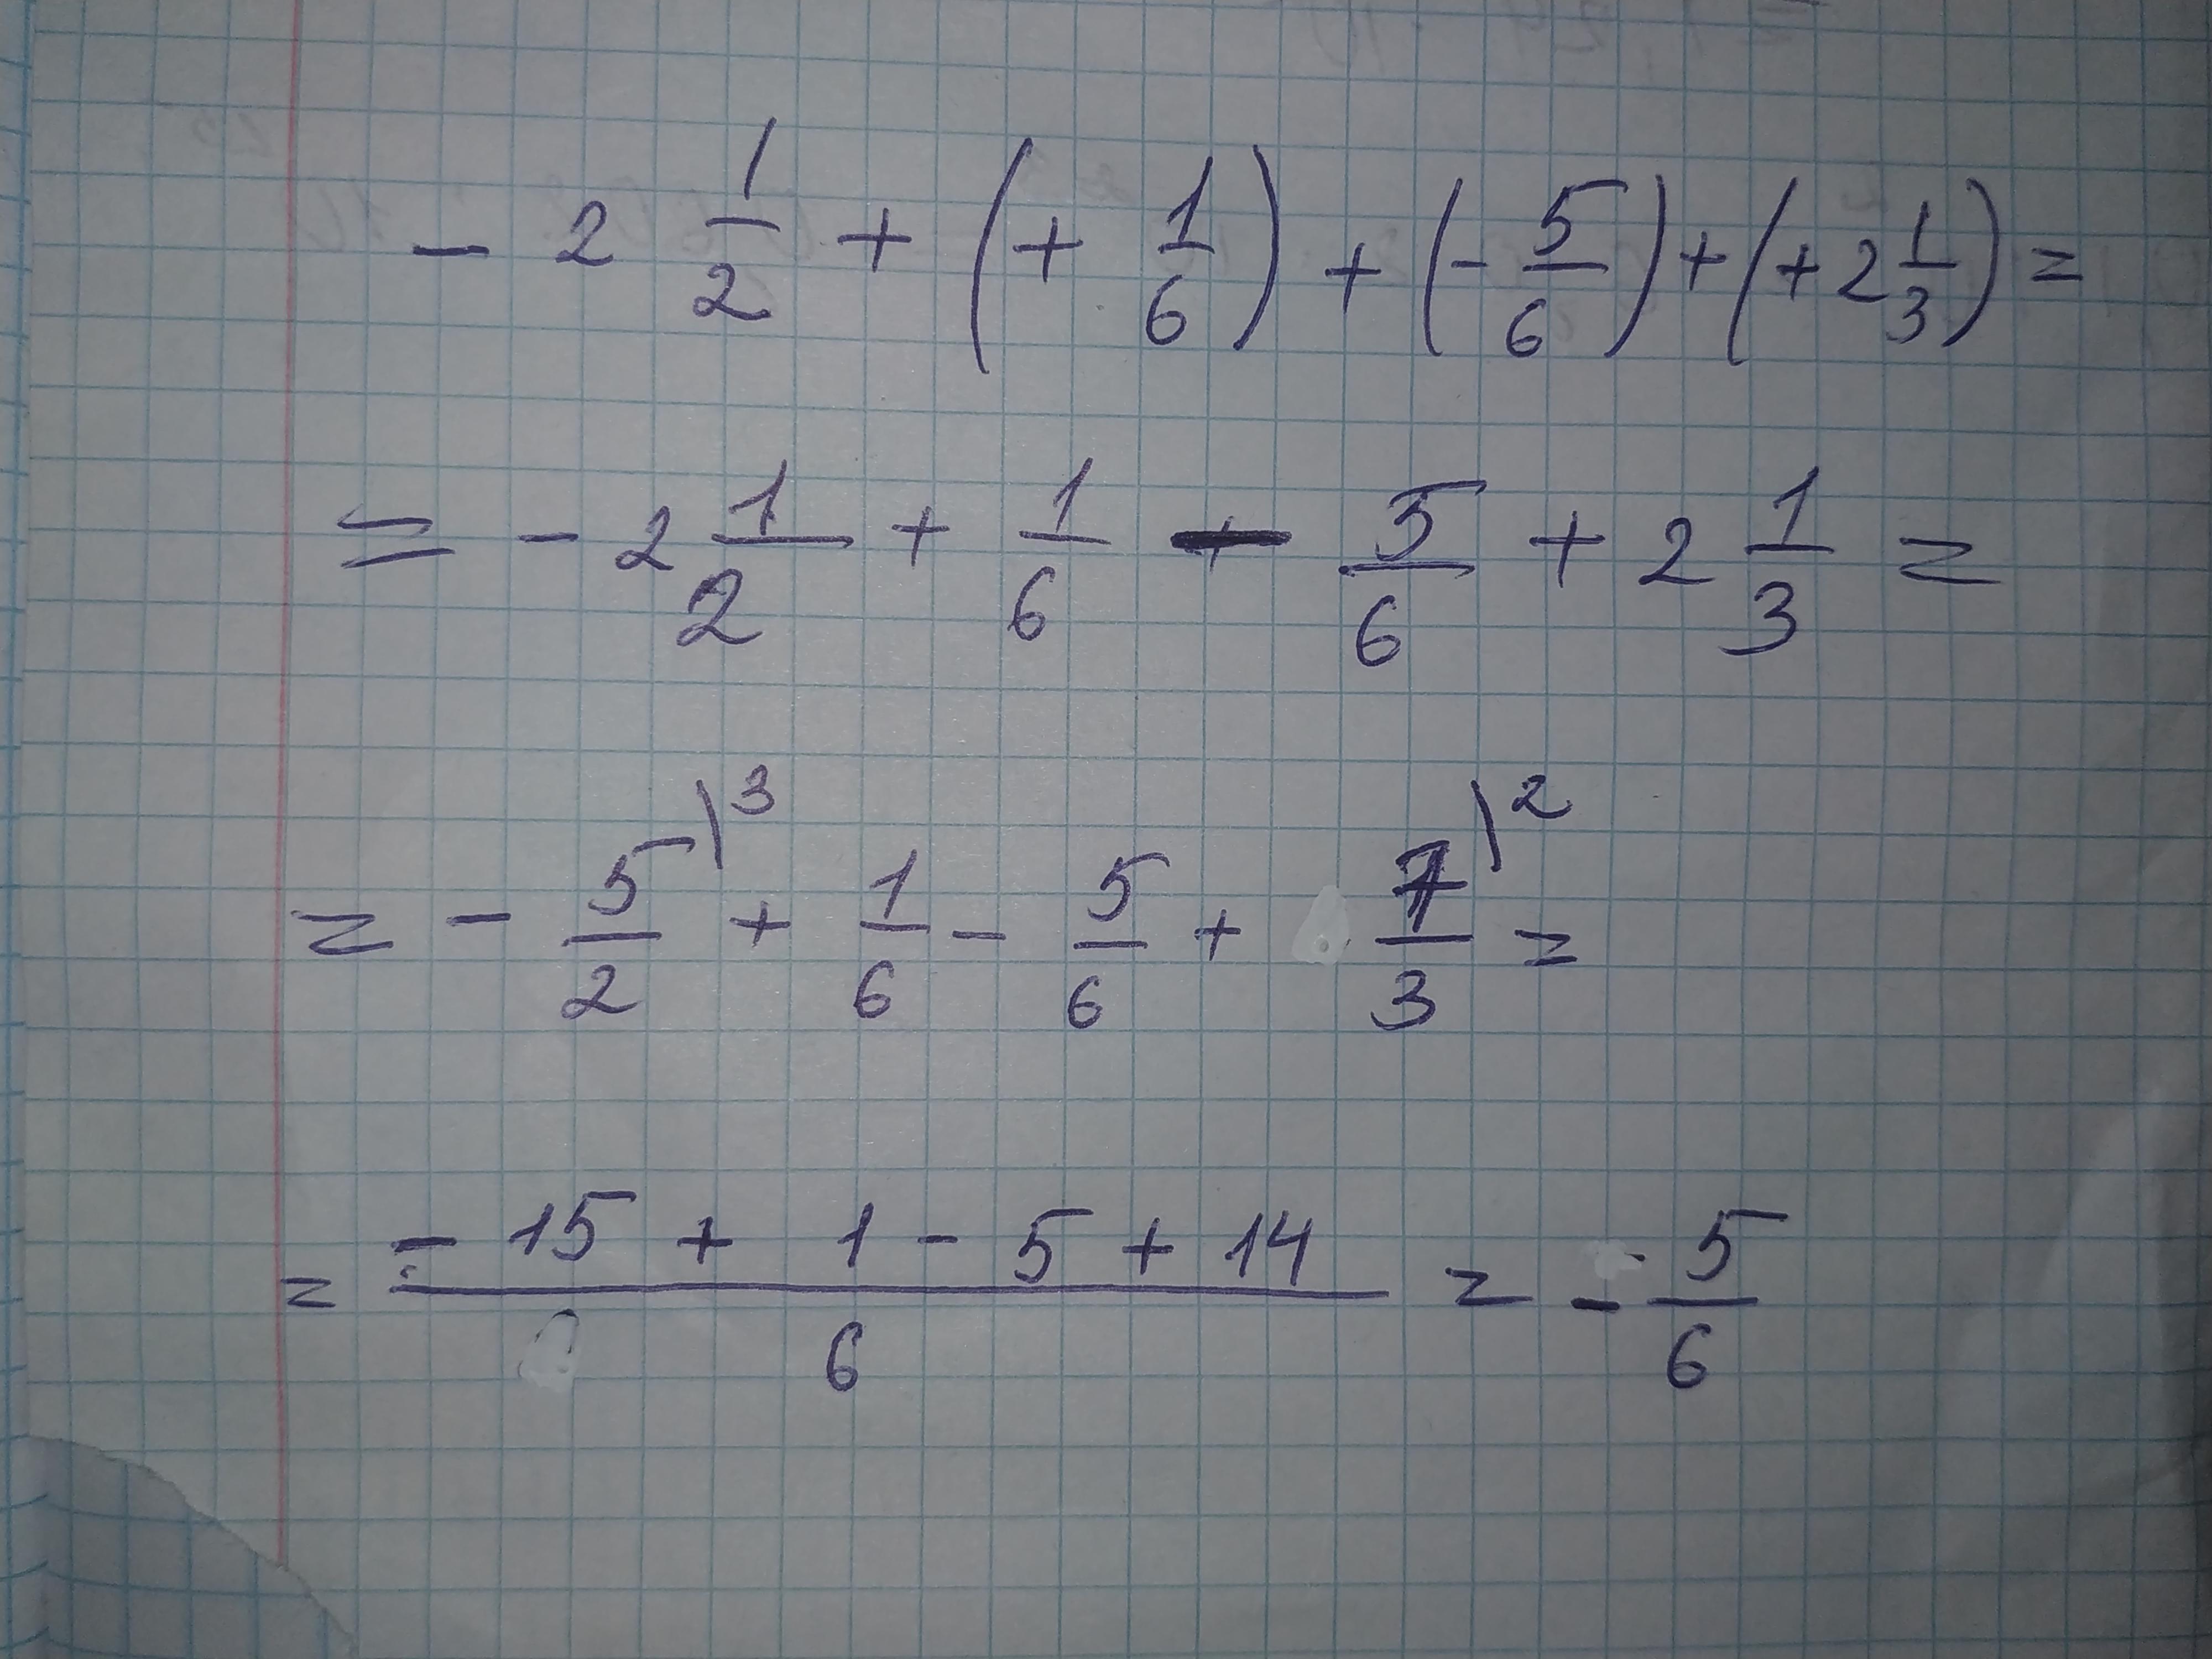 - 2 1/2 + (+ 1/6) + (- 5/6) + (+ 2 1/3) =
= - 2 1/2 + 1/6 - 5/6 + 2 1/3 =
= - 5/2 \3 + 1/6 - 5/6 + 7/3 \2 =
= (- 15 + 1 - 5 + 14)/6 = - 5/6